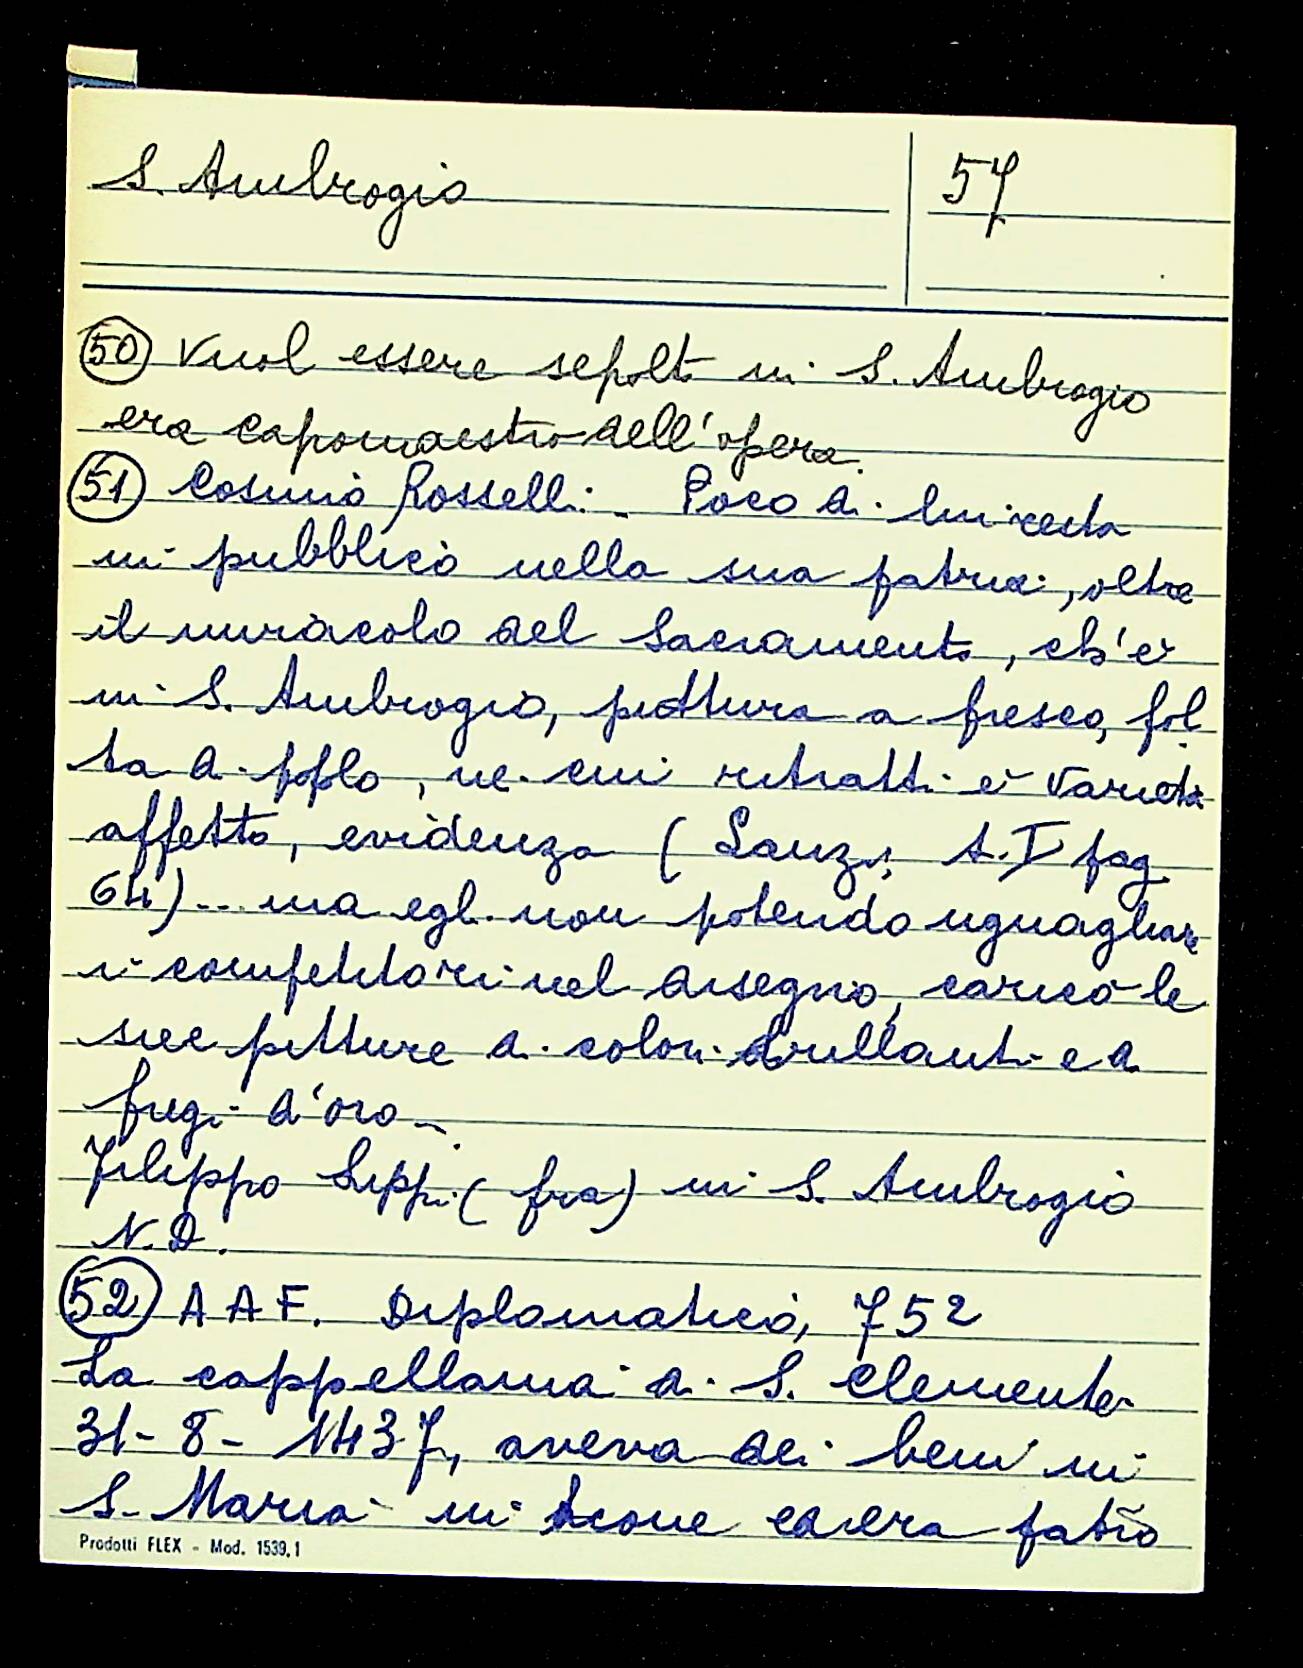 S. Ambrogio
57
50 Vuol essere sepolto in S. Ambrogio
era capomaestro dell'opera.
51 Cosimo Rosselli - Poco di lui resta
in pubblico nella sua patria, oltre
il miracolo del Sacramento, ch'è
in S. Ambrogio, pittura a fresco, fol
ta di poplo, ne cui ritratti è varietà
affetto, evidenza (Lanzi, t. I pag.
64)... ma egli non potendo uguagliare
i competitori nel disegno, caricò le
sue pitture di colori brillanti e di
fregi d'oro -
Filippo Lippi (fra) in S. Ambrogio
N. D.
52 A A F. Diplomatico, 752
La cappellania di S. Clemente
31-8-1437, aveva dei beni in
S. Maria in Acone ed era patro
Prodotti FLEX - Mod. 1539.1